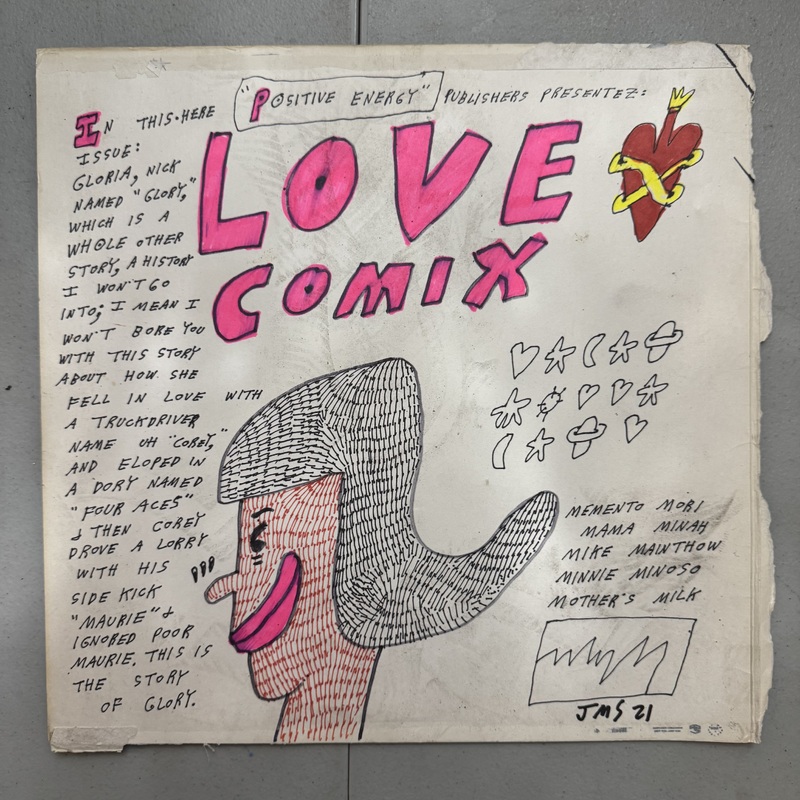 "POSITIVE ENERGY" PUBLISHERS PRESENTEZ:
LOVE
COMIX
IN THIS·HERE
ISSUE:
GLORIA, NICK
NAMED "GLORY,"
WHICH IS A
WHOLE OTHER
STORY, A HISTORY
I WON'T GO
INTO; I MEAN I
WON'T BORE YOU
WITH THIS STORY
ABOUT HOW SHE
FELL IN LOVE WITH
A TRUCKDRIVER
NAME UH "COREY,"
AND ELOPED IN
A DORY NAMED
"FOUR ACES"
& THEN COREY
DROVE A LORRY
WITH HIS
SIDE KICK
"MAURIE" &
IGNORED POOR
MAURIE. THIS IS
THE STORY
OF GLORY.
MEMENTO MORI
MAMA MINAH
MIKE MAINTHOW
MINNIE MINOSO
MOTHER'S MILK
JMS 21